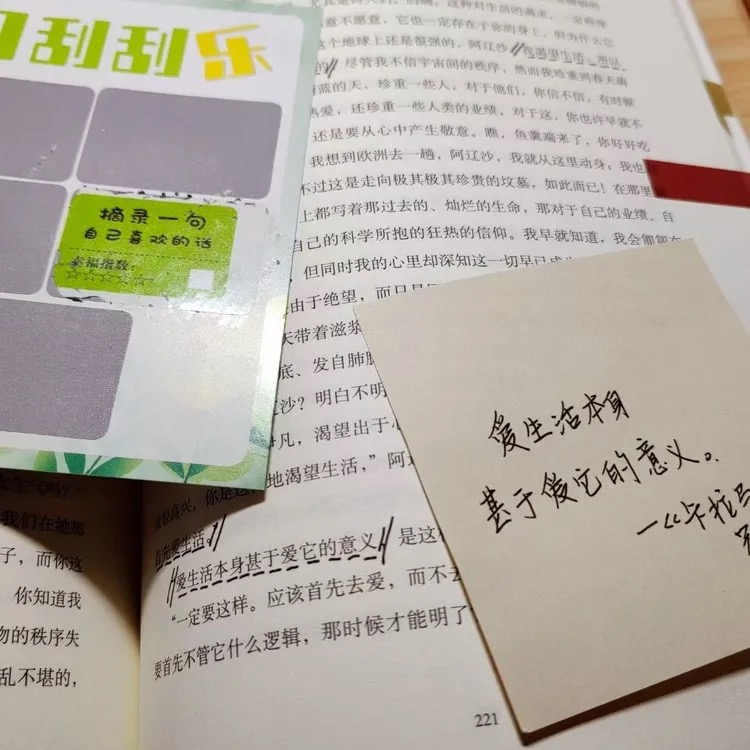 刮刮乐
摘录一句
自己喜欢的话
幸福指数:
☆☆☆☆☆
个地球上还是很强的，阿辽沙，我渴望生活，所以
尽管我不信宇宙间的秩序，然而我珍重到春天
蓝的天，珍重一些人，对于他们，你信不信，有时候
热爱，还珍重一些人类的业绩，对于这，你也许早就不
还是要从心中产生敬意。瞧，鱼羹端来了，你好好吃
我想到欧洲去一趟，阿辽沙，我就从这里动身；我也
不过这是走向极其极其珍贵的坟墓，如此而已！在那里
上都写着那过去的、灿烂的生命，那对于自己的业绩、自
自己的科学所抱的狂热的信仰。我早就知道，我会匍匐在
但同时我的心里却深知这一切早已
由于绝望，而只是
天带着滋
底、发自肺
沙？明白不明
凡，渴望出于
地渴望生活，”阿
高兴，你是这
首先爱生活
“爱生活本身甚于爱它的意义” 是这
“一定要这样。应该首先去爱，而不去
要首先不管它什么逻辑，那时候才能明了
221
我们在她那
子，而你这
你知道我
物的秩序失
乱不堪的，
爱生活本身
甚于爱它的意义。
—《卡拉